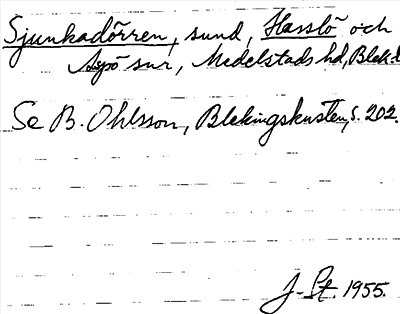 Sjunkadörren, sund, Hasslö och
Aspö snr, Medelstads hd, Blek.l
Se B. Ohlsson, Blekingskusten, s. 202.
J. St. 1955.